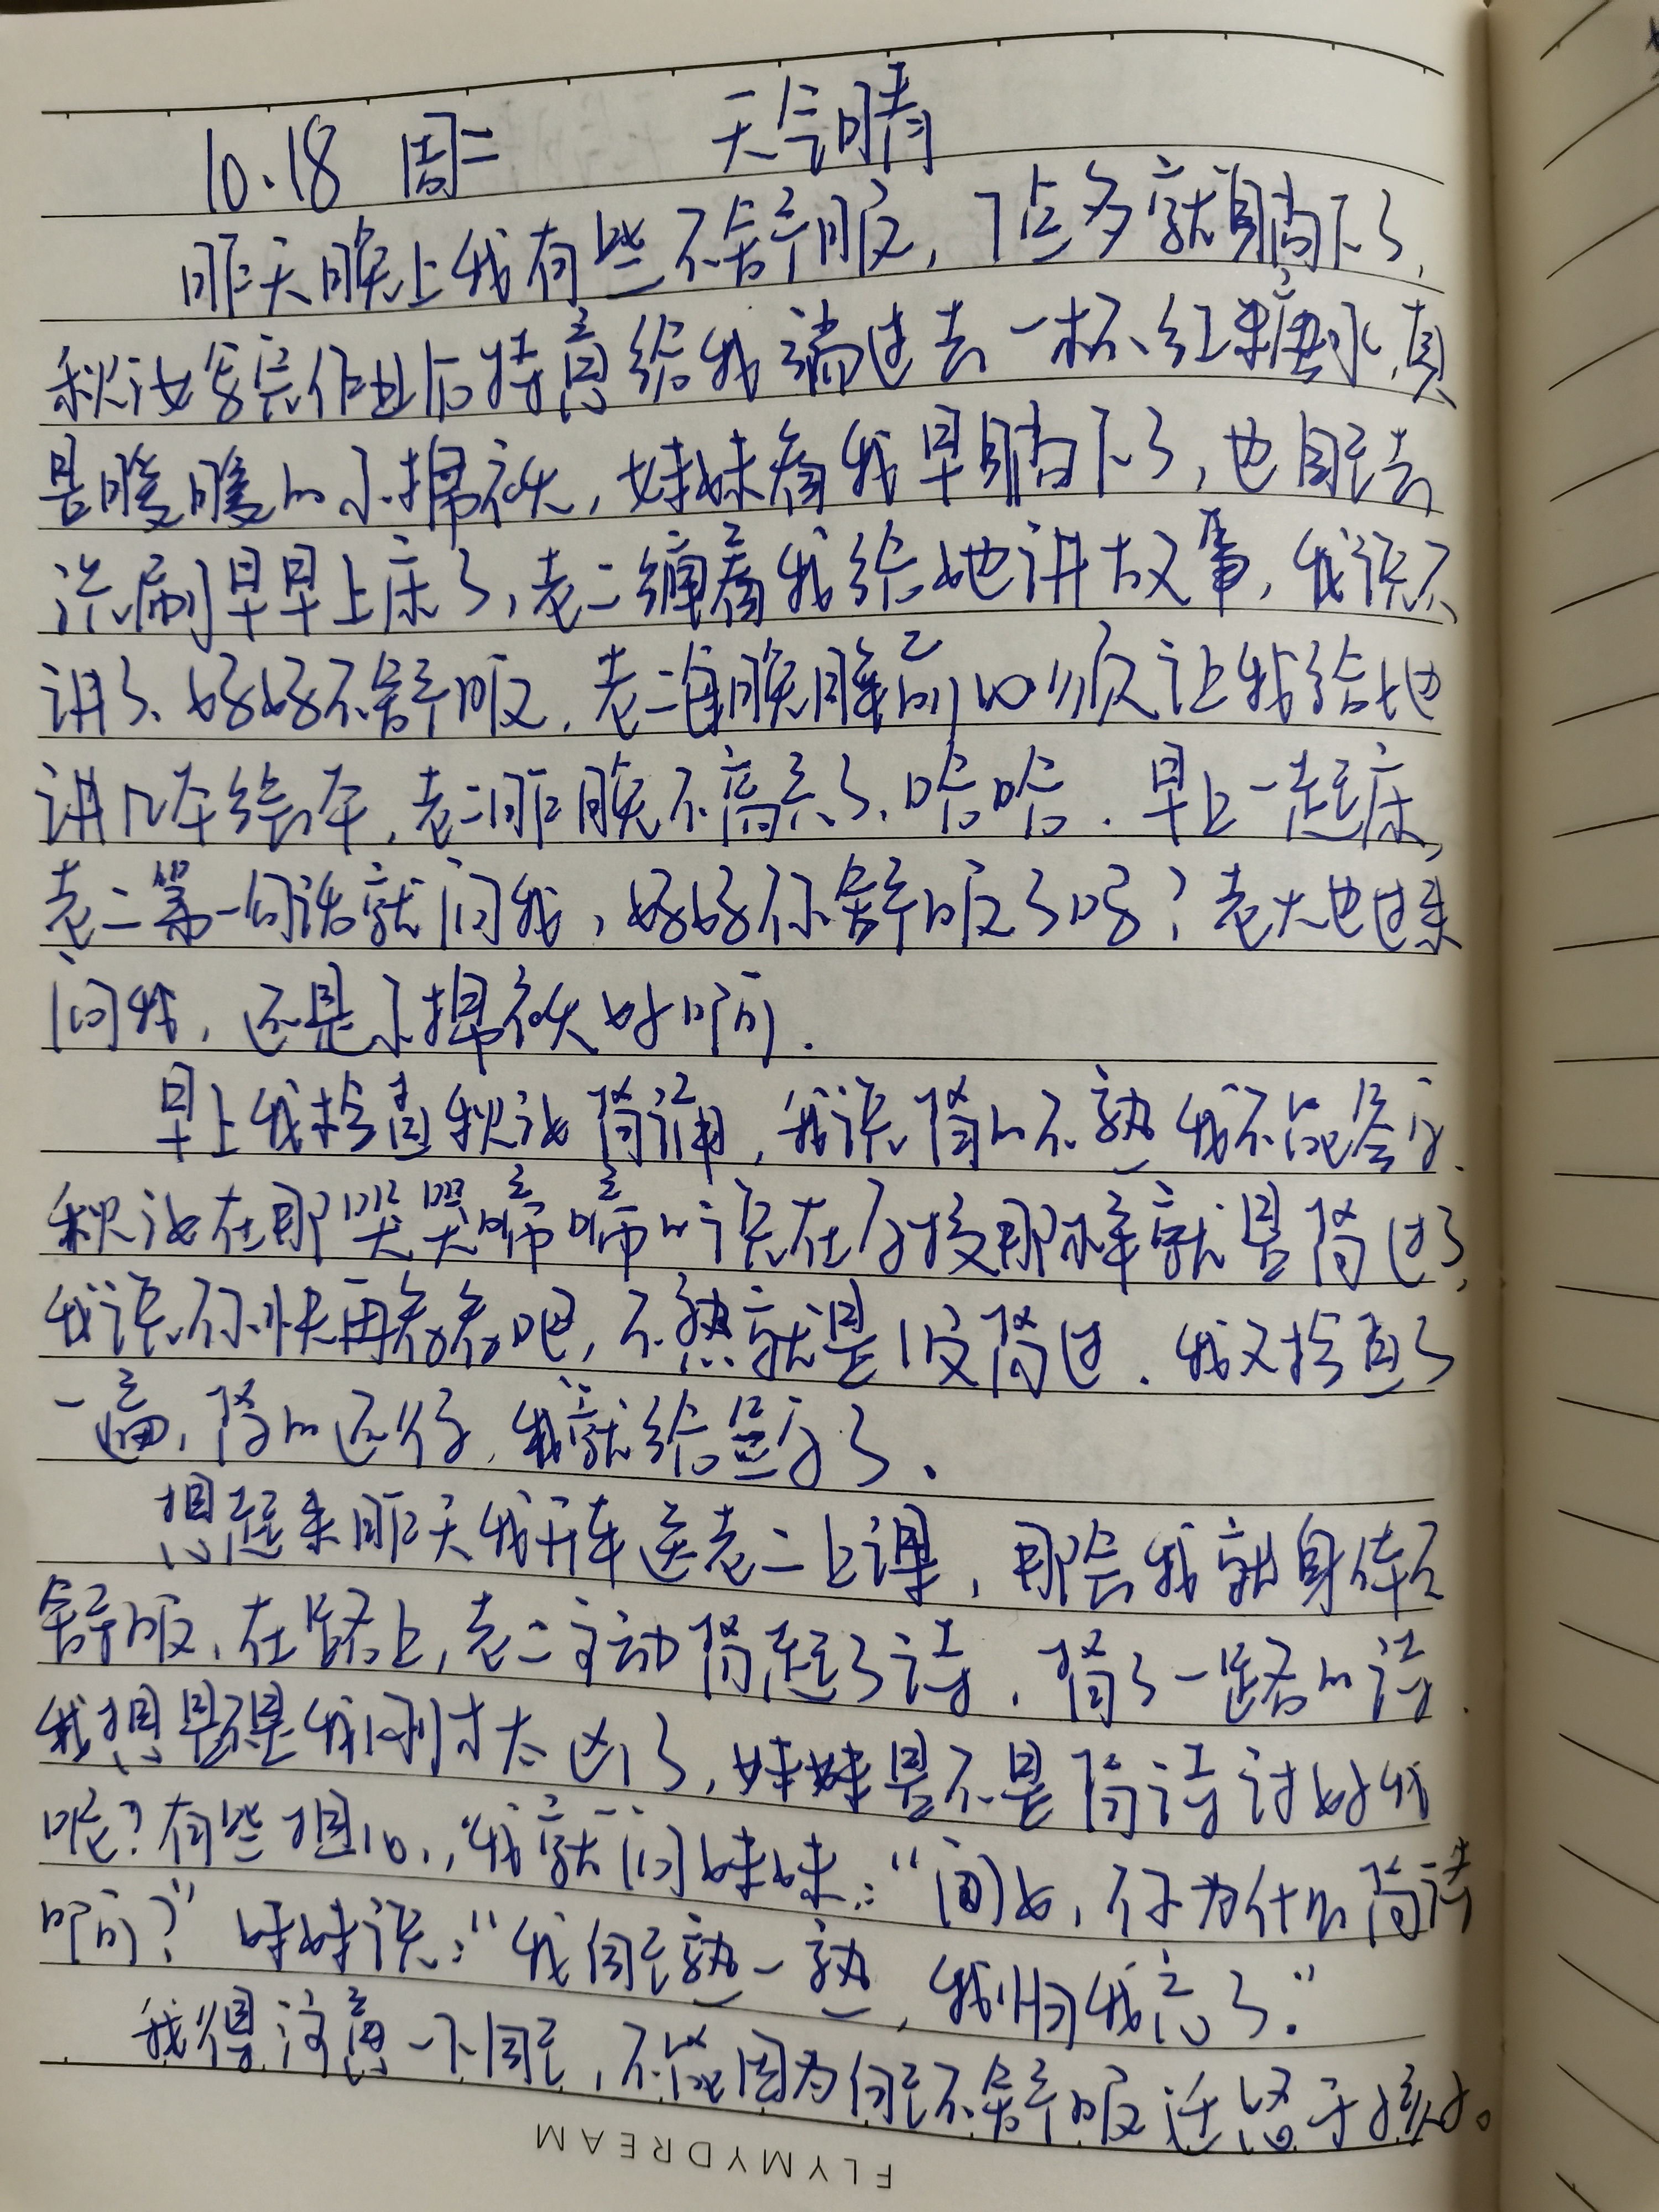 10.18 周二 天气晴
昨天晚上我有些不舒服，7点多就躺下了，
秋汝写完作业后特意给我端过去一杯红糖水，真
是暖暖的小棉袄，妹妹看我早躺下了，也自己去
洗刷早早上床了，老二缠着我给她讲故事，我说不
讲了、妈妈不舒服，老二每晚睡前必须让我给她
讲几本绘本，老二昨晚不高兴了、哈哈．早上一起床，
老二第一句话就问我，妈妈你舒服了吗？老大也过来
问我，还是小棉袄好啊．
早上我检查秋汝背诵，我说背的不熟我不能签字．
秋汝在那哭哭啼啼的说在学校那样就是背过了，
我说你快再看看吧，不熟就是没背过．我又检查了
一遍，背的还行，我就给签字了．
想起来昨天我开车送老二上课，那会我就身体不
舒服，在路上，老二主动背起了诗，背了一路的诗．
我想是不是我刚才太凶了，妹妹是不是背诗讨好我
呢？有些担心，我就问妹妹：“汝，你为什么背诗
啊？”妹妹说：“我自己熟一熟，我怕我忘了．”
我得注意一下自己，不能因为自己不舒服迁怒于孩子。
FLYMYDREAM